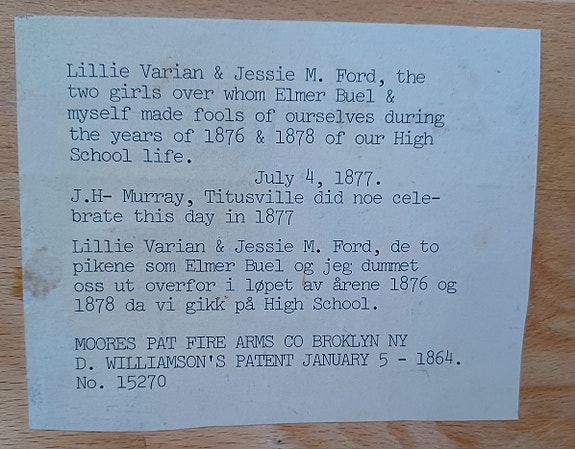 Lillie Varian & Jessie M. Ford, the
two girls over whom Elmer Buel &
myself made fools of ourselves during
the years of 1876 & 1878 of our High
School life.
July 4, 1877.
J.H- Murray, Titusville did noe cele-
brate this day in 1877
Lillie Varian & Jessie M. Ford, de to
pikene som Elmer Buel og jeg dummet
oss ut overfor i løpet av årene 1876 og
1878 da vi gikk på High School.
MOORES PAT FIRE ARMS CO BROKLYN NY
D. WILLIAMSON'S PATENT JANUARY 5 - 1864.
No. 15270